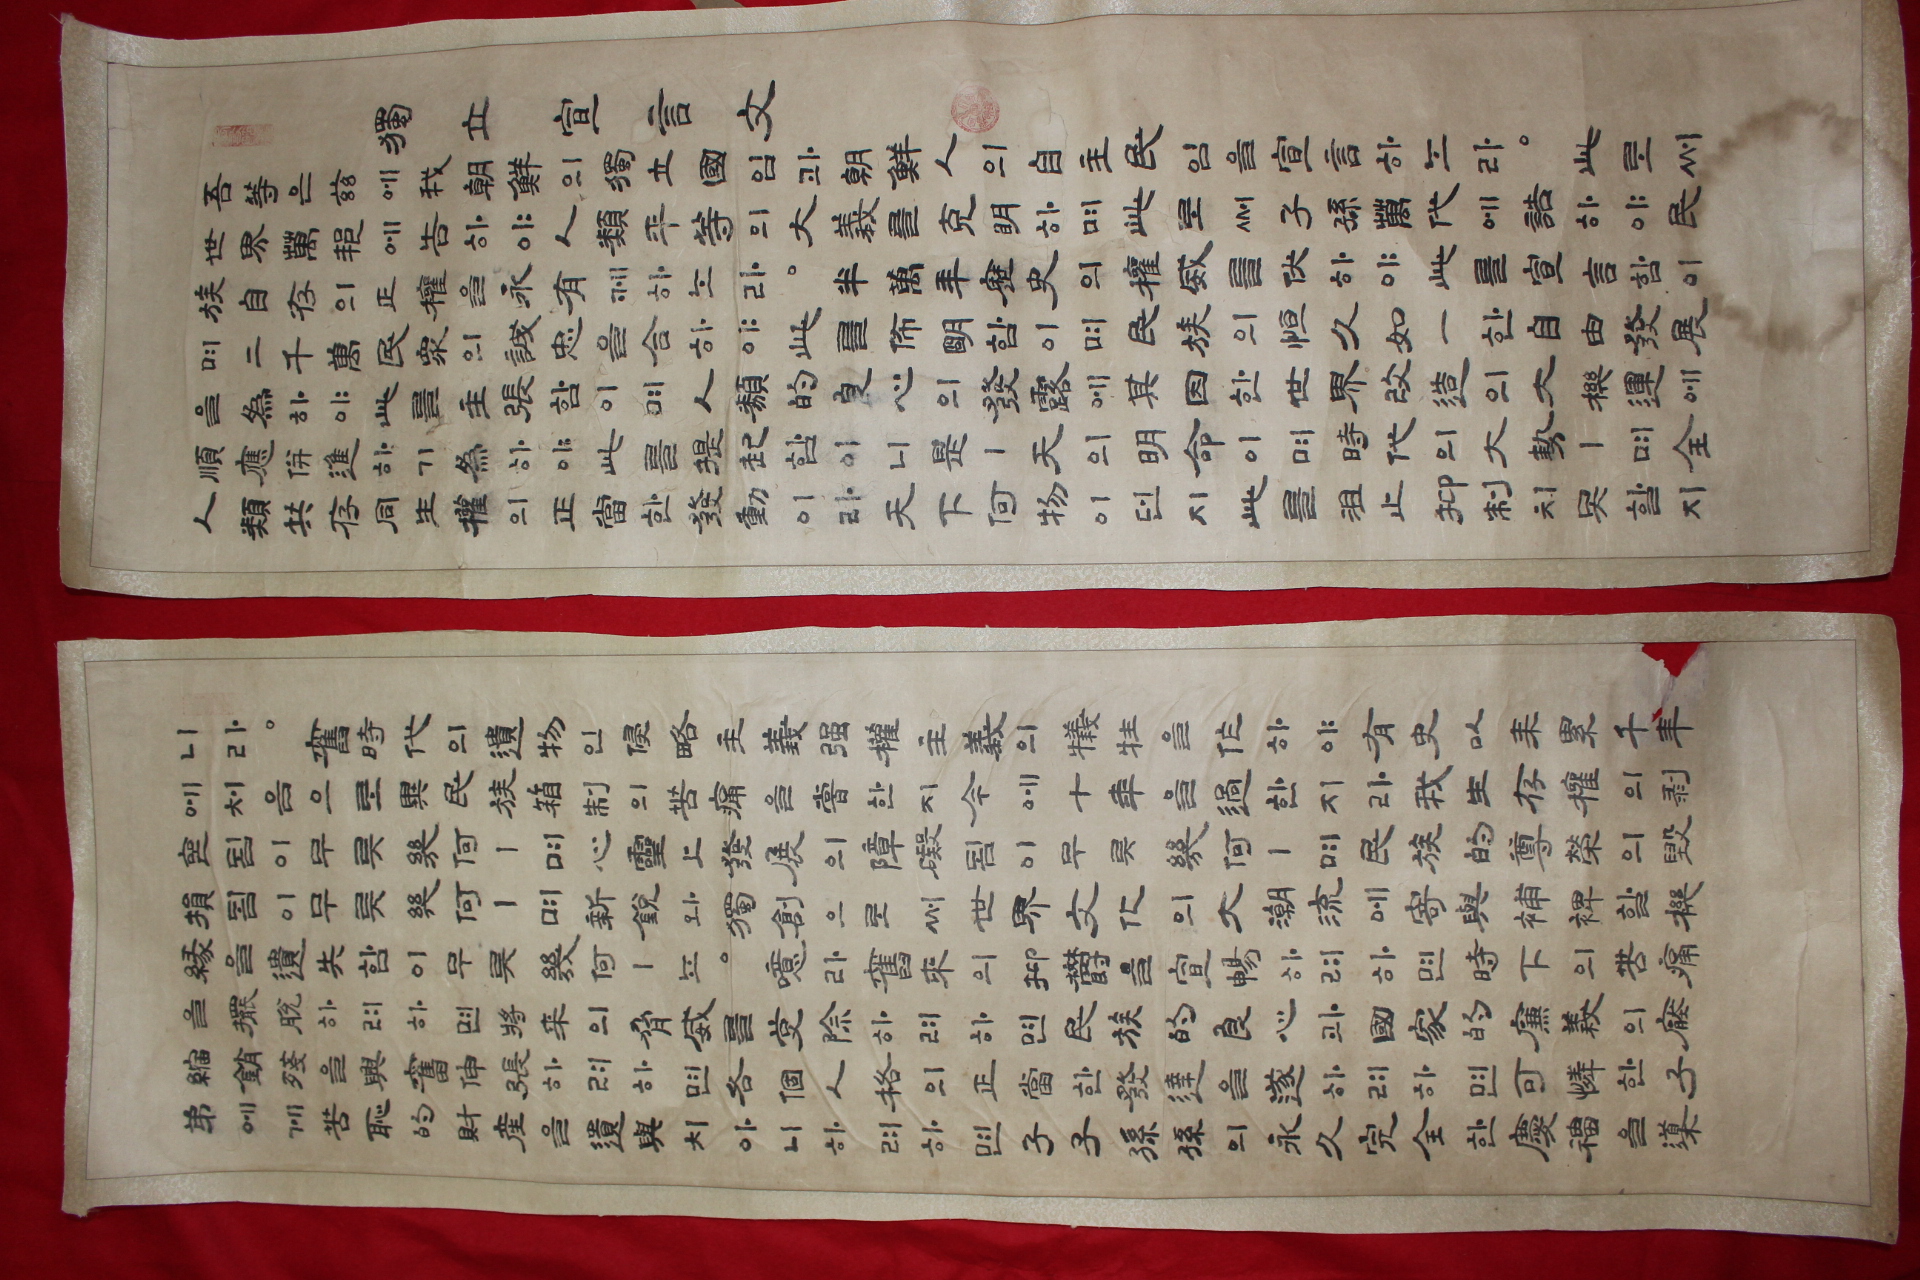 獨立宣言文
吾等은玆에我朝鮮의獨立國임과朝鮮人의自主民임을宣言하노라。此로써
世界萬邦에告하야人類平等의大義를克明하며此로써子孫萬代에誥하야民
族自存의正權을永有케하노라。半萬年歷史의權威를仗하야此를宣言함이
며二千萬民衆의誠忠을合하야此를佈明함이며民族의恒久如一한自由發展
을為하야此를主張함이며人類的良心의發露에其因한世界改造의大機運에
順應併進하기為하야此를提起함이니是ㅣ天의明命이며時代의大勢ㅣ며全
人類共存同生權의正當한發動이라天下何物이던지此를沮止抑制치못할지
니라。舊時代의遺物인侵略主義强權主義의犧牲을作하야有史以来累千年
에처음으로異民族箝制의苦痛을嘗한지今에十年을過한지라我生存權의剥
喪됨이무릇幾何ㅣ며心靈上發展의障礙됨이무릇幾何ㅣ며民族的尊榮의毀
損됨이무릇幾何ㅣ며新銳와獨創으로써世界文化의大潮流에寄與補裨할機
緣을遺失함이무릇幾何ㅣ노。噫라舊來의抑鬱을宣暢하려하면時下의苦痛
을擺脫하려하면將来의脅威를芟除하려하면民族的良心과國家的廉義의
縮銷殘을興奮伸張하려하면各個人格의正當한發達을遂하려하면可憐한子
弟에게苦恥的財産을遺與치아니하려하면子子孫孫의永久完全한慶福을導